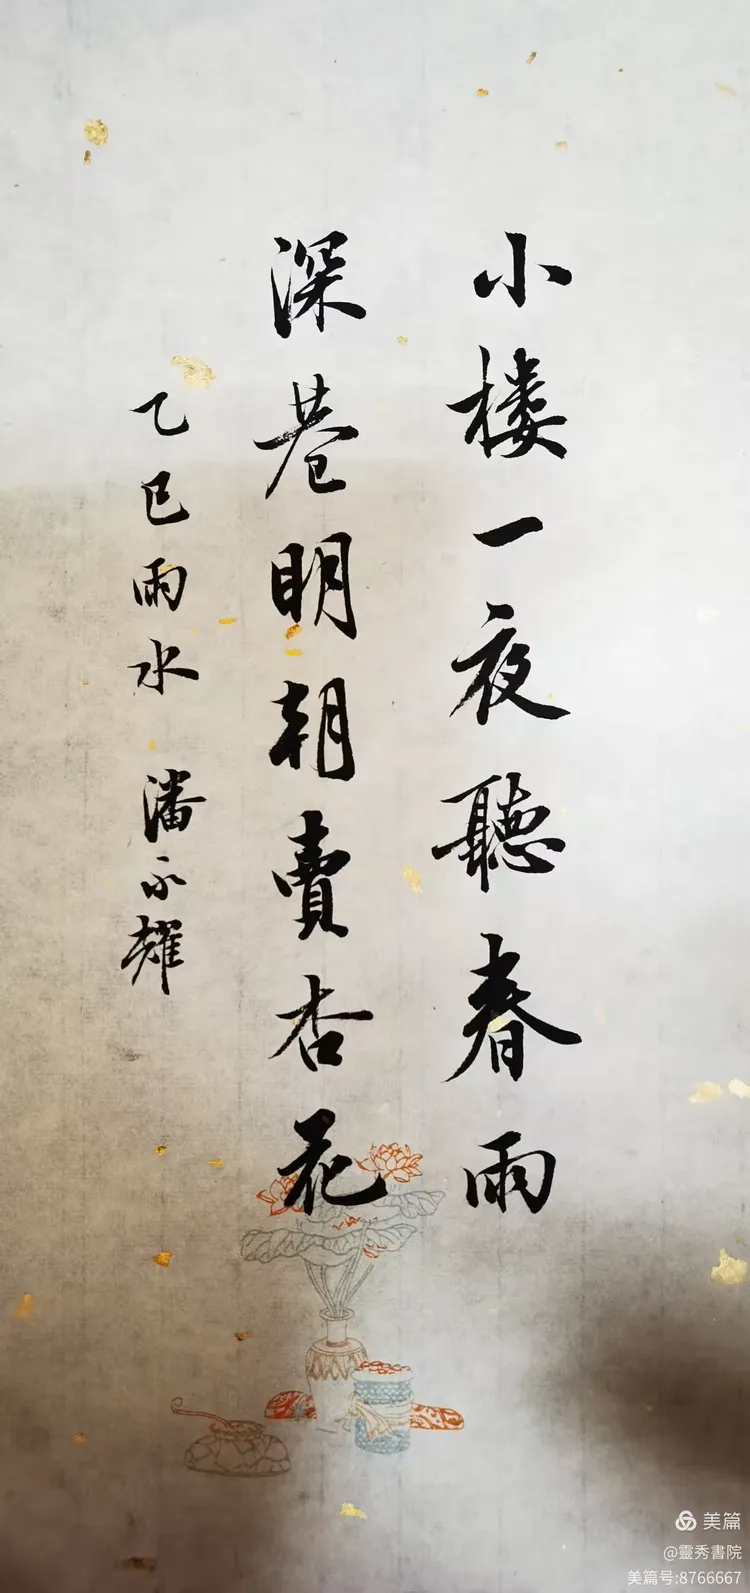 小楼一夜聽春雨
深巷明朝賣杏花
乙巳雨水 潘永耀
美篇
@靈秀書院
美篇号:8766667